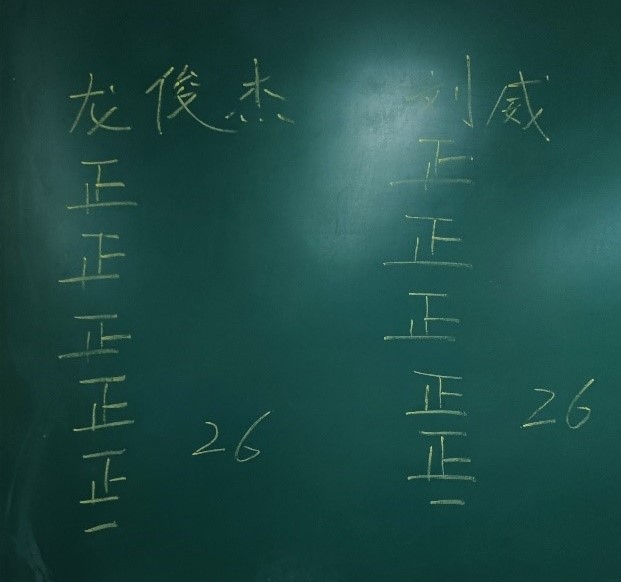 龙俊杰 刘威
正 正
正 正
正 正
正 正
正 正
一 一
26 26